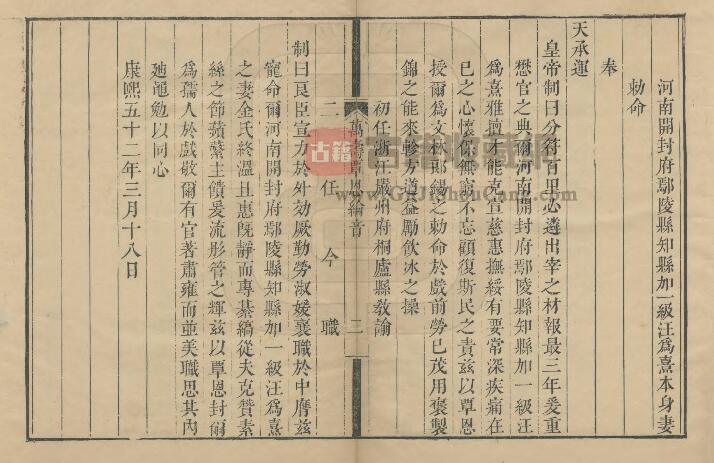 河南開封府鄢陵縣知縣加一級汪爲熹本身妻
勅命
奉
天承運
皇帝制曰分符百里必遴出宰之材報最三年爰重
懋官之典爾河南開封府鄢陵縣知縣加一級汪
爲熹雅擅才能克宣慈惠撫綏有要常深疾痛在
己之心懷保無窮不忘顧復斯民之責茲以覃恩
授爾爲文林郎錫之勅命於戲前勞已茂用褒製
錦之能來軫方遒益勵飲冰之操
初任浙江嚴州府桐廬縣教諭
萬壽覃恩綸音
二
二任今職
制曰良臣宣力於外効厥勤勞淑媛襄職於中膺茲
寵命爾河南開封府鄢陵縣知縣加一級汪爲熹
之妻金氏終溫且惠旣靜而專綦縞從夫克贊素
絲之節蘋蘩主饋爰流彤管之輝茲以覃恩封爾
爲孺人於戲敬爾有官著肅雍而並美職思其內
迪黽勉以同心
康熙五十二年三月十八日
古籍
www.GuJiShouCang.com